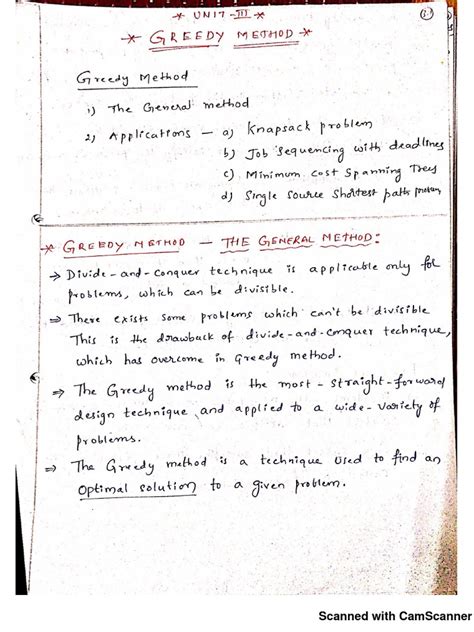 * UNIT-III *
* GREEDY METHOD *
Greedy Method
1) The General method
2) Applications - a) Knapsack problem
b) Job Sequencing with deadlines
c) Minimum cost Spanning Trees
d) Single Source Shortest paths problem
* GREEDY METHOD - THE GENERAL METHOD:
→ Divide-and-conquer technique is applicable only for
problems, which can be divisible.
⇒ There exists some problems which can't be divisible
This is the drawback of divide-and-conquer technique,
which has overcome in Greedy method.
⇒ The Greedy method is the most-straight-forward
design technique and applied to a wide-variety of
problems.
⇒ The Greedy method is a technique used to find an
Optimal solution to a given problem.
Scanned with CamScanner